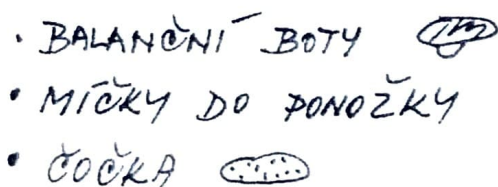 • BALANČNÍ BOTY
• MÍČKY DO PONOŽKY
• ČOČKA